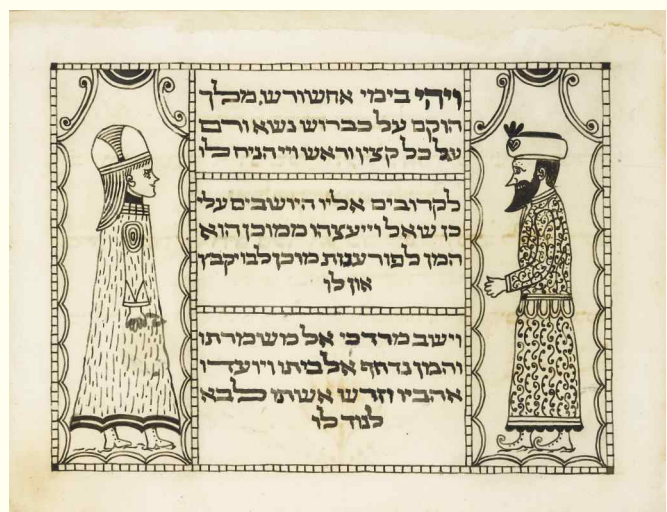 ויהי בימי אחשורש, מלך
הוקם על כברוש נשא ורם
על כל קצין וראש וייהניח כלו
לקרובים אליו היושבים עלי
כן שאל וייעצהו ממוכן הוא
המן לפורענות מוכן לבו יקבץ
און לו
וישב מרדכי אל משמרתו
והמן נדחף אל ביתו ויועדו
אהביו וזרש אשתו כלבא
לנוד לו